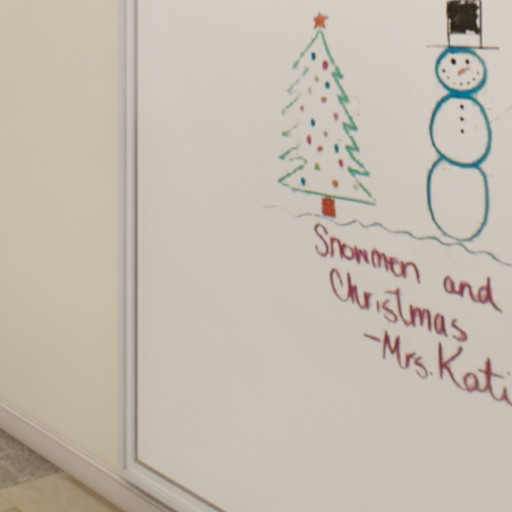 Snowmen and
Christmas
-Mrs. Kati